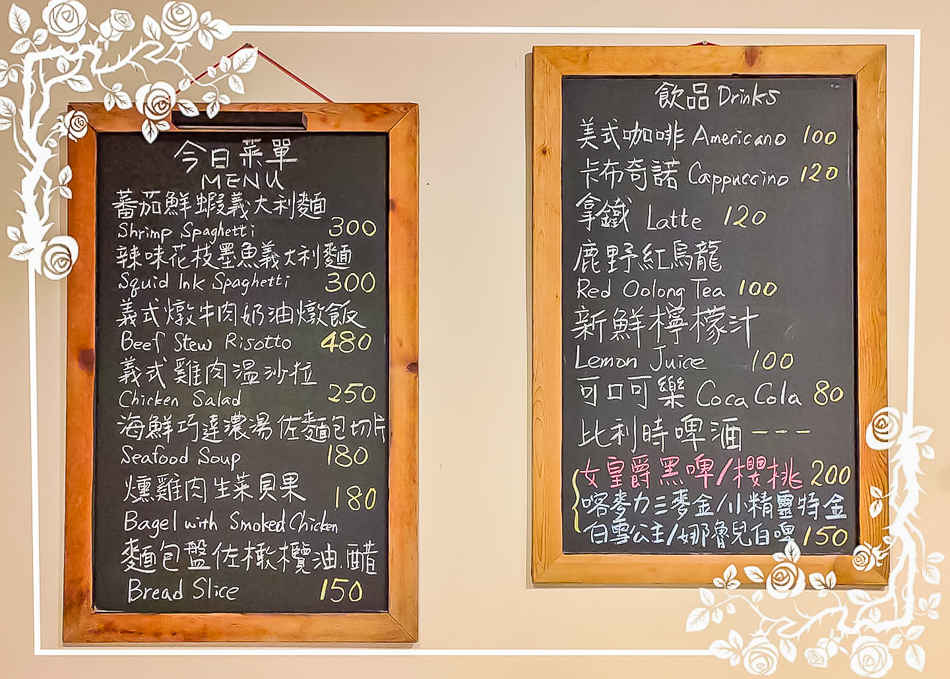 今日菜單
MENU
蕃茄鮮蝦義大利麵
Shrimp Spaghetti 300
辣味花枝墨魚義大利麵
Squid Ink Spaghetti 300
義式燉牛肉奶油燉飯
Beef Stew Risotto 480
義式雞肉溫沙拉
Chicken Salad 250
海鮮巧達濃湯佐麵包切片
Seafood Soup 180
燻雞肉生菜貝果
180
Bagel with Smoked Chicken
麵包盤佐橄欖油.醋
Bread Slice 150
飲品 Drinks
美式咖啡 Americano 100
卡布奇諾 Cappuccino 120
拿鐵 Latte 120
鹿野紅烏龍
Red Oolong Tea 100
新鮮檸檬汁
Lemon Juice 100
可口可樂 Coca Cola 80
比利時啤酒---
女皇爵黑啤/櫻桃 200
喀麥力三麥金/小精靈特金
白雪公主/娜魯兒白啤 150